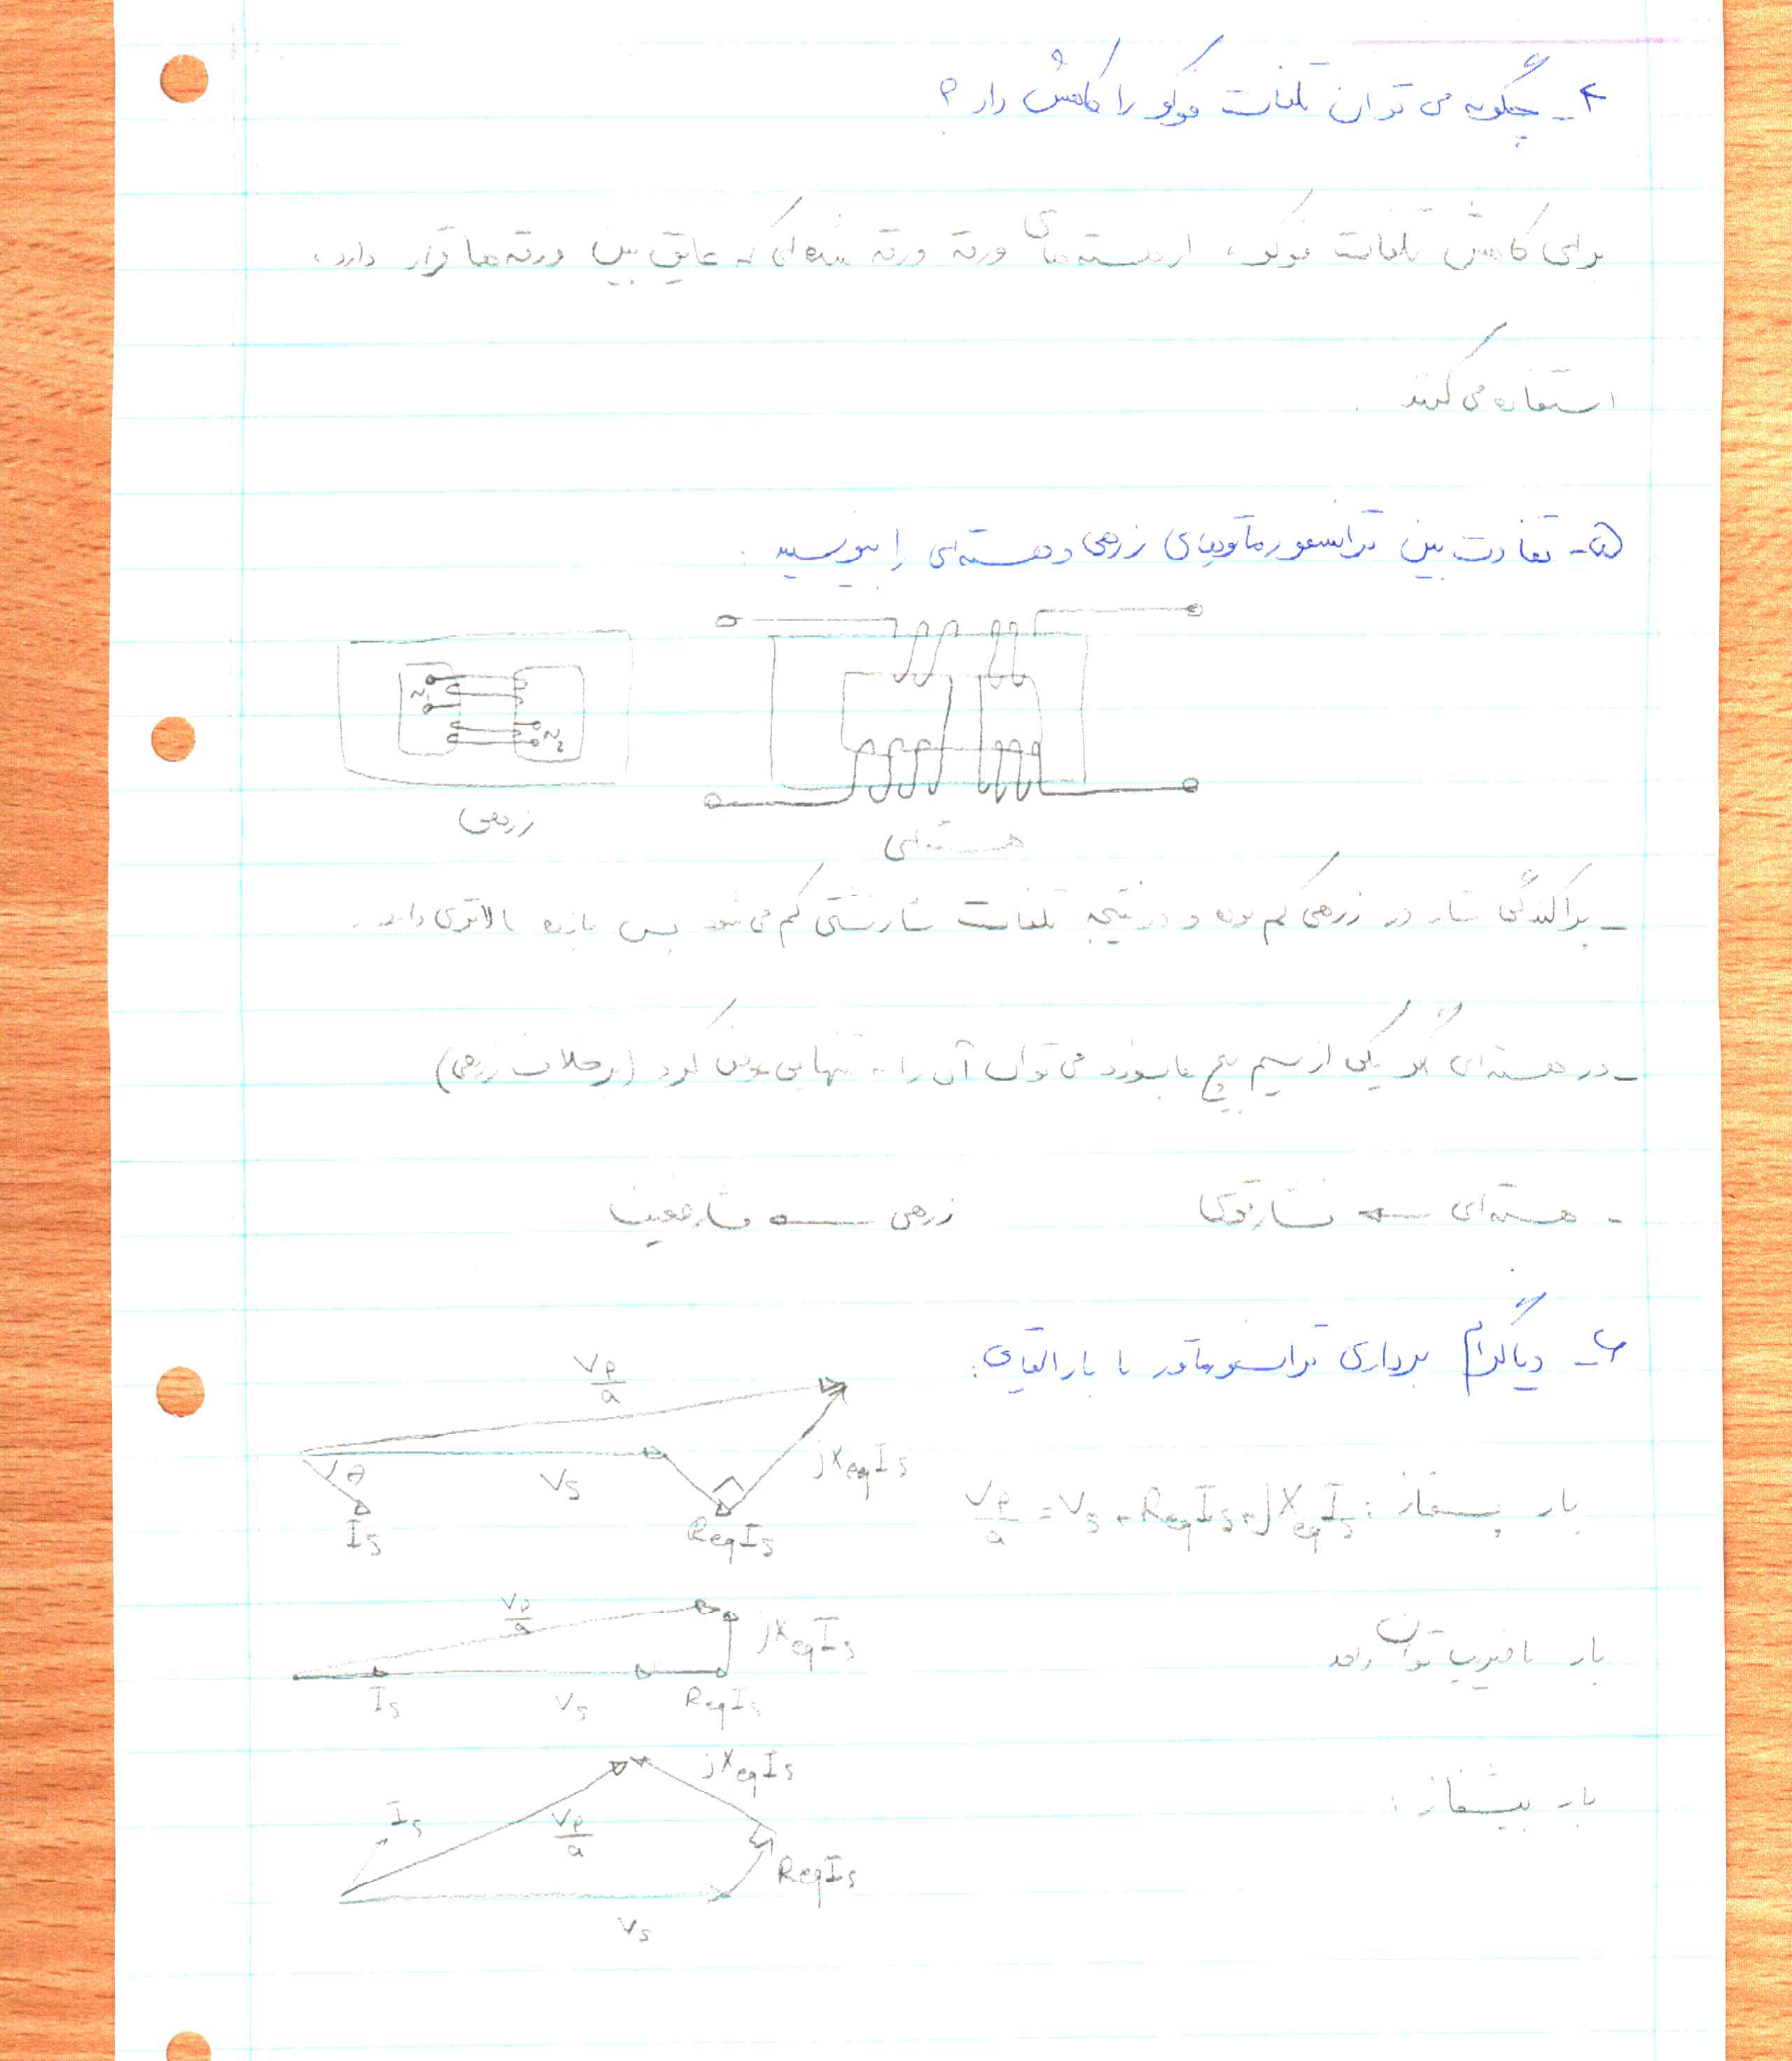 ۴- چگونه می توان تلفات فوکو را کاهش داد ؟
برای کاهش تلفات فوکو، از هسته های ورقه ورقه شده ای که عایق بین ورقه ها قرار دارد،
استفاده می کنند .
۵- تفاوت بین ترانسفورماتورهای زرهی و هسته ای را بنویسید .
N1
N2
زرهی
هسته ای
- پراکندگی شار در زرهی کم بوده و در نتیجه تلفات شار نشتی کم می شود پس بازده بالاتری دارد .
- در هسته ای اگر یکی از سیم پیچ ها بسوزد می توان آن را به تنهایی عوض کرد (برخلاف زرهی)
- هسته ای ← فشار قوی زرهی ← فشار ضعیف
۶- دیاگرام برداری ترانسفورماتور با بار القایی :
Vp/a
θ
Vs
Is
ReqIs
jXeqIs
بار پسفاز : Vp/a = Vs + ReqIs + jXeqIs
بار با ضریب توان واحد
Vp/a
jXeqIs
Is
Vs
ReqIs
بار پیشفاز :
jXeqIs
Is
Vp/a
ReqIs
Vs